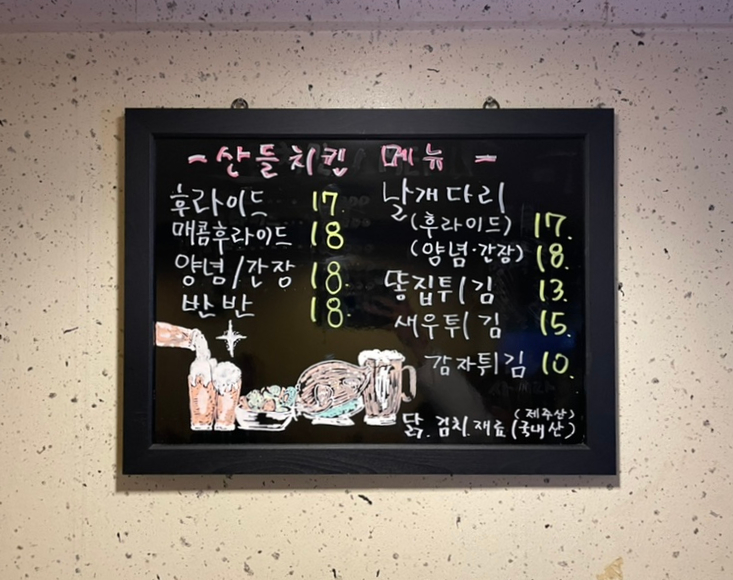 - 산들치킨 메뉴 -
후라이드 17.
매콤후라이드 18
양념/간장 18.
반반 18.
날개다리
(후라이드) 17.
(양념·간장) 18.
똥집튀김 13.
새우튀김 15.
감자튀김 10.
(제주산)
닭. 김치. 재료(국내산)